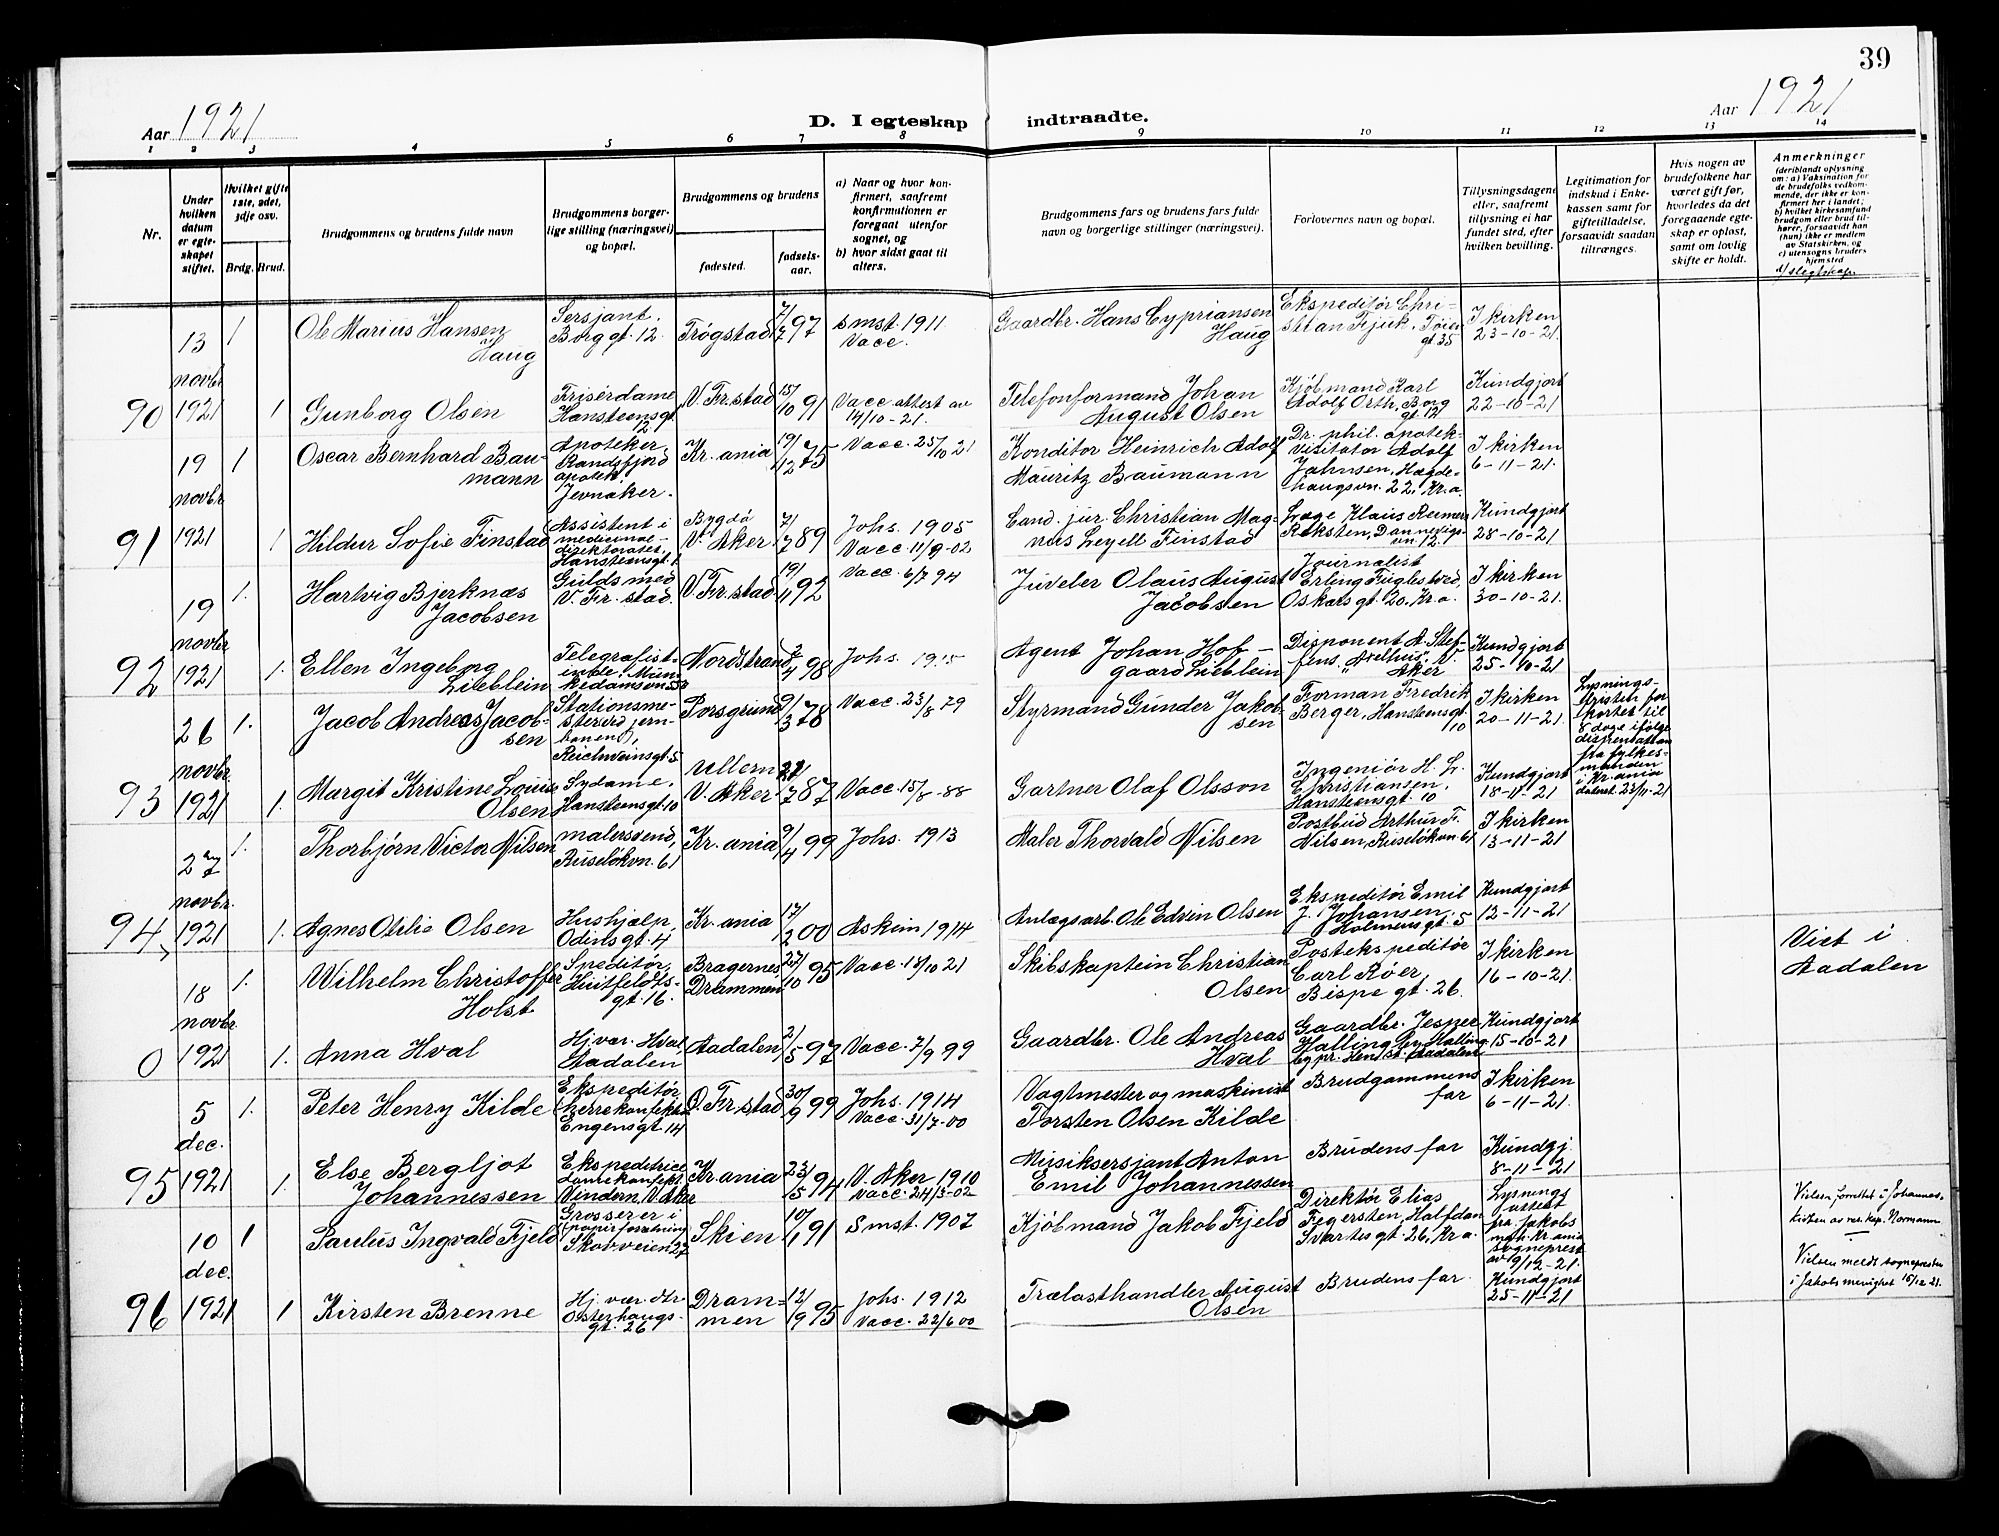 39
Aar 1921
D. I egteskap indtraadte.
Aar 1921
1 2 3 4 5 6 7 8 9 10 11 12 13 14
Nr.
Under hvilken datum er egteskapet stiftet.
Hvilket gifte 1ste, 2det, 3dje osv.
Brdg. Brud.
Brudgommens og brudens fulde navn
Brudgommens borgerlige stilling (næringsvei) og bopæl.
Brudgommens og brudens
fødested.
fødselsaar.
a) Naar og hvor konfirmert, saafremt konfirmationen er foregaat utenfor sognet, og
b) hvor sidst gaat til alters.
Brudgommens fars og brudens fars fulde navn og borgerlige stillinger (næringsvei).
Forlovernes navn og bopæl.
Tillysningsdagene eller, saafremt tillysning ei har fundet sted, efter hvilken bevilling.
Legitimation for indskud i Enkekassen samt for giftetilladelse, forsaavidt saadan tiltrænges.
Hvis nogen av brudefolkene har været gift før, hvorledes da det foregaaende egteskap er opløst, samt om lovlig skifte er holdt.
Anmerkninger
(deriblandt oplysning om: a) Vaksination for de brudefolks vedkommende, der ikke er konfirmert her i landet;
b) hvilket kirkesamfund brudgom eller brud tilhører, forsaavidt han (hun) ikke er medlem av Statskirken, og
c) utensogns bruders hjemsted
d/ slegtskap.
90 13 novbr 1921
1 Ole Marius Hansen Haug
Sersjant. Borggt. 12.
Trøgstad 7/7 97
Smst. 1911 Vacc.
Gaardbr. Hans Cypriansen Haug
Ekspeditør Christian Fjuk, Tøiengt. 35
I kirken 23-10-21.
1 Gunborg Olsen
Frisérdame Hansteensgt. 12
V. Fr. stad 15/10 91
Vacc attest av 14/10-21.
Telefonformand Johan August Olsen
Kjøbmand Karl Adolf Orth, Borggt. 12
Kundgjort 22-10-21
91 19 novbr 1921
1 Oscar Bernhard Baumann
Apoteker Randsfjord apotek. Jevnaker.
Kr. ania 19/12 75
Vacc. 25/10 21
Konditor Heinrich Adolf Mauritz Baumann
Dr. phil. apotekvisitator Adolf Jahnsen, Hægdehaugsvn. 22, Kr.a.
I kirken 6-11-21.
1 Hildur Sofie Finstad
Assistent i medicinaldirektoratet, Hansteensgt. 1
Bygdø V. Aker 7/7 89
Johs. 1905 Vacc. 11/9-02
Cand. jur. Christian Magnus Leyell Finstad
Læge Klaus Reimers Reksten, Dannevigsvn. 12.
Kundgjort 28-10-21
92 19 novbr 1921
1. Hartvig Bjerknæs Jacobsen
Guldsmed V. Fr. stad.
V. Fr. stad 19/1 92
Vacc. 6/7 94
Juveler Olaus August Jacobsen
Journalist Erling Fuglestved, Oskarsgt. 20. Kr.a.
I kirken 30-10-21.
1. Ellen Ingeborg Lieblein
Telegrafistinde, Munkedamsvn 53
Nordstrand 2/4 98
Johs. 1915
Agent Johan Hofgaard Lieblein
Disponent A. Steffens, "Arelhus", V. Aker
Kundgjort 25-10-21
93 26 novbr. 1921
1. Jacob Andreas Jacobsen
Stationsmester ved jernbanen, Reichweinsgt. 5
Porsgrund 9/3 78
Vacc. 23/8 79
Styrmand Gunder Jakobsen
Forman Fredrik Berger, Hansteensgt. 10
I kirken 20-11-21.
Lysningsfristen forkortet til 8 dage ifølge dispensation fra fylkesmanden i Kr.ania dateret 23/11-21
1. Margit Kristine Louise Olsen
Sydame, Hansteensgt. 10
Ullern V. Aker 21/7 87
Vacc. 15/8-88
Gartner Olaf Olsson
Ingeniør H. L. Christiansen, Hansteensgt. 10
Kundgjort 18-11-21
94 27 novbr. 1921
1. Thorbjørn Victor Nilsen
malersvend, Ruseløkvn. 61
Kr. ania 9/4 99
Johs. 1913
Maler Thorvald Nilsen
Postbud Arthur F. Nilsen, Ruseløkvn. 61
I kirken 13-11-21
1. Agnes Otilie Olsen
Hushjælp, Odinsgt. 4
Kr. ania 17/2 00
Askim 1914
Anlægsarb. Ole Edvin Olsen
Ekspeditør Emil J. Johansen, Holmensgt. 5
Kundgjort 12-11-21
0 18 novbr. 1921
1. Wilhelm Christoffer Holst
Speditør, Huitfeldtsgt. 16.
Bragernes Drammen 27/10 95
Vacc. 18/10 21
Skibskaptein Christian Olsen
Postekspeditør Carl Røer, Bispegt. 26.
I kirken 16-10-21.
Viet i Aadalen
1. Anna Hval
Hj. vær. Hval, Aadalen
Aadalen 2/5 97
Vacc. 7/9 99
Gaardbr. Ole Andreas Hval
Gaardbr. Jesper Halling
Kundgjort 15-10-21
95 5 dec. 1921
1. Peter Henry Kilde
Ekspeditør (herrekonfekt.) Engensgt 14
Ø. Fr. stad 30/9 99
Johs. 1914 Vacc. 31/7-00
Vagtmester og maskinist Torsten Olsen Kilde
Brudgommens far
I kirken 6-11-21.
1. Else Bergljot Johannessen
Ekspeditrice damekonfekt. Vindern. V. Aker
Kr. ania 23/5 94
V. Aker 1910 Vacc. 24/3-02
Musiksersjant Anton Emil Johannessen
Brudens far
Kundgj. 8-11-21
96 10 dec. 1921
1 Paulus Ingvald Fjeld
Grosserer i (papirforretning) Skovveien 27
Skien 10/1 91
Smst. 1907
Kjøbmand Jakob Fjeld
Direktør Elias Fegersten, Halfdan Svartesgt. 26, Kr a.
Lysningsattest fra Jakobs men. Kr. ania sogneprest av 9/12-21.
Vielsen forrettet i Johanneskirken av res. kap. Normann
Vielsen meldt sognepresten i Jakobs menighet 15/12 21.
1 Kirsten Brenne
Hj. vær. dtr Osterhausgt. 26
Drammen 12/9 95
Johs. 1912 Vacc. 22/6 00
Trælasthandler August Olsen
Brudens far
Kundgjort 25-11-21